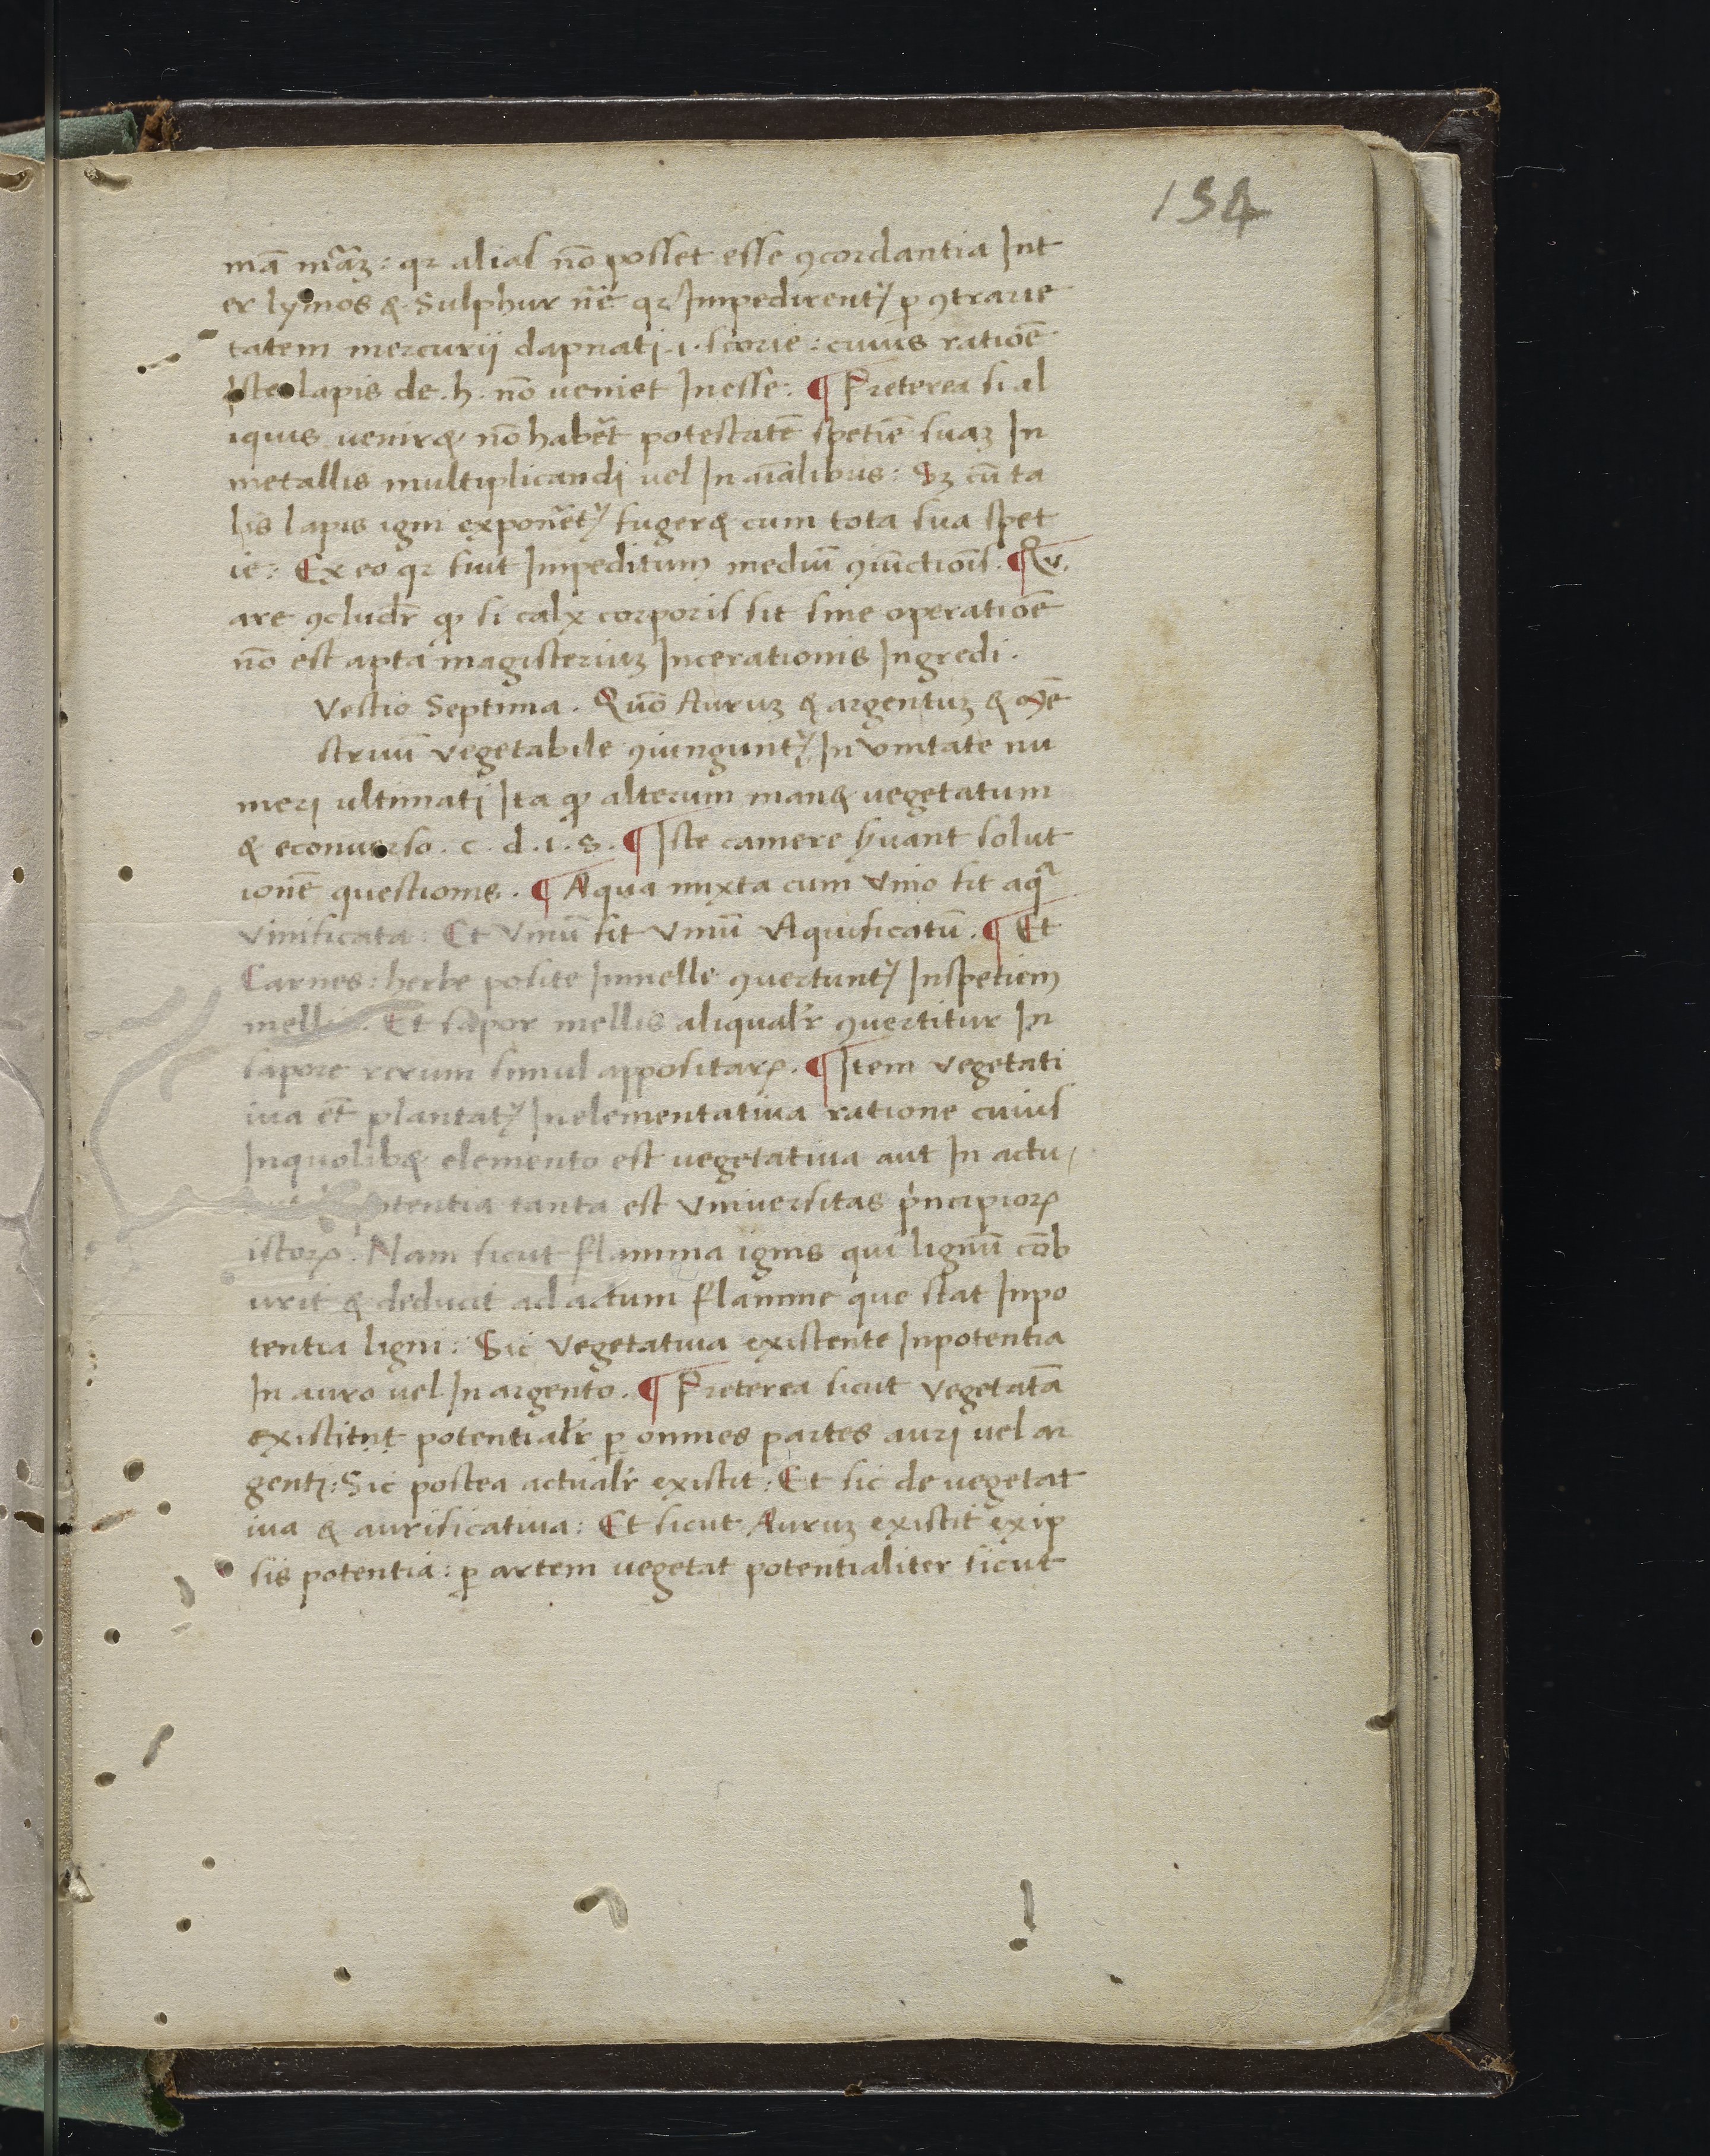 154
mā mr̄aꝫ: qꝛ alias nō posset esse ꝯcordantia Int
er lymos & Sulphur nr̄ē qꝛ Impedirent᷑ ꝑ ꝯtrarie
tatem mercurij dapnati .i. scorie: cuius ratiōe
Iste lapis de .h. nō veniet Inesse: ¶ Preterea si al
iquis veniret nō habēt potestatē spetiē suaꝫ In
metallis multiplicandi vel In aīalibus: Sꝫ cū ta
lis lapis igni exponēt᷑ fugeret cum tota sua spet
ie: Ex eo qꝛ fuit Impeditum mediū ꝯiūctiōis. ¶ Qu
are ꝯcludr̄ ꝙ si calx corporis sit sine operatiōe
nō est apta magisteriuꝫ Incerationis Ingredi.
Vestio Septima. Quō Auruꝫ & argentuꝫ & Mē
struū vegetabile ꝯiungunt᷑ In vnitate nu
meri ultimati Ita ꝙ alterum manet vegetatum
& econuerso. c. d. i. s. ¶ Iste camere Iuuant solut
ionē questionis. ¶ Aqua mixta cum Vino fit aqᷓ
vinificata: Et Vinū fit Vinū Aquificatū. ¶ Et
Carnes: herbe posite Inmelle ꝯvertunt᷑ Inspetiem
mellis. Et sapor mellis aliqualr̄ ꝯvertitur In
sapore rerum simul appositaꝝ. ¶ Item vegetati
iua ēt plantat᷑ Inelementatiua ratione cuius
Inquolibet elemento est vegetatiua aut In actu,
potentia tanta est vniversitas pͥncipioꝝ
istoꝝ. Nam sicut flamma ignis qui lignū cōb
urit & deducit ad actum flamme que stat Inpo
tentia ligni: Sic Vegetatiua existente Inpotentia
In auro vel In argento. ¶ Preterea sicut vegetatā
existitnt potentialr̄ ꝑ omnes partes auri vel ar
genti: Sic postea actualr̄ existit: Et sic de vegetat
iua & aurificatiua: Et sicut Auruꝫ existit exip
sis potentia: ꝑ artem vegetat potentialiter sicut